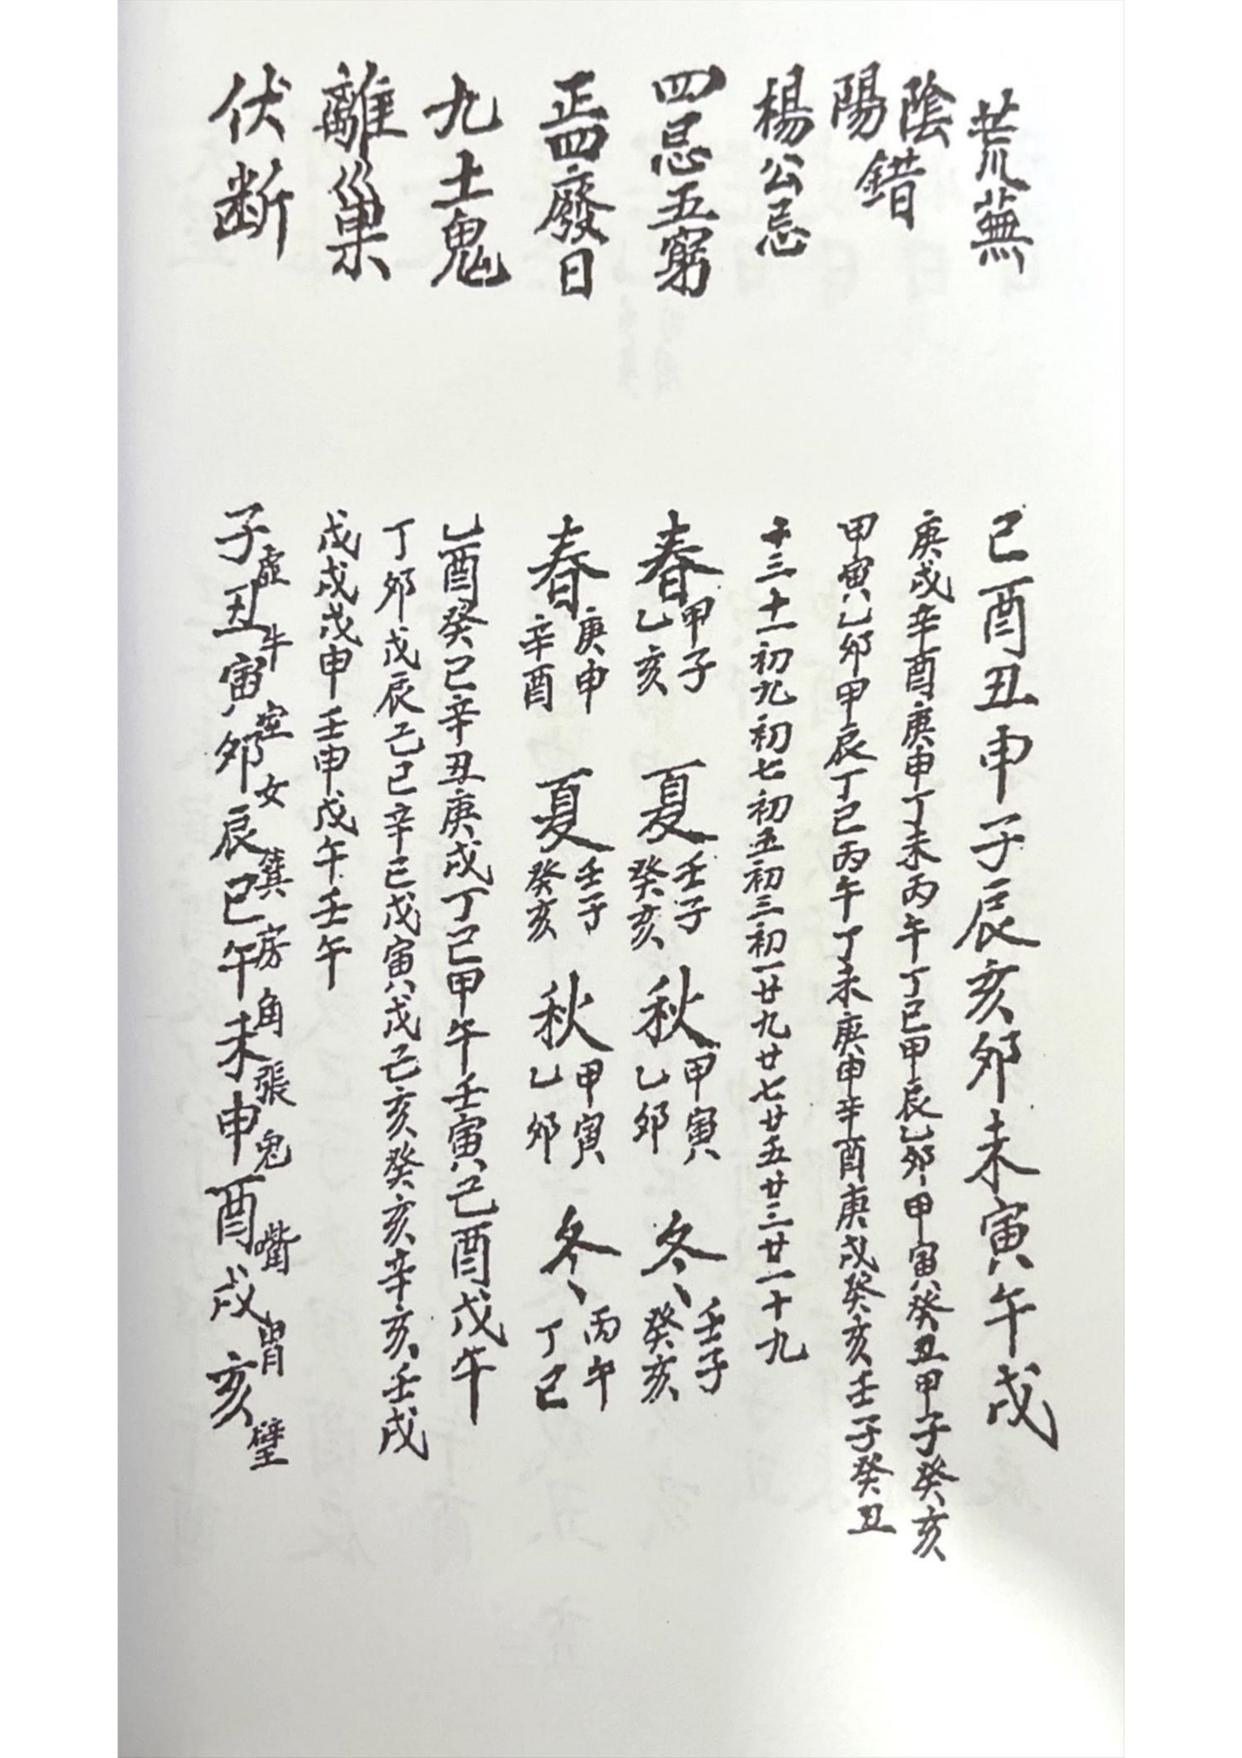 荒蕪
巳酉丑申子辰亥卯未寅午戌
陰陽錯
庚戌辛酉庚申丁未丙午丁巳甲辰乙卯甲寅癸丑甲子癸亥
甲寅乙卯甲辰丁巳丙午丁未庚申辛酉庚戌癸亥壬子癸丑
楊公忌
十三十一初九初七初五初三初一廿九廿七廿五廿三廿一十九
四忌五窮
春甲子乙亥 夏壬子癸亥 秋甲寅乙卯 冬壬子癸亥
正四廢日
春庚申辛酉 夏壬子癸亥 秋甲寅乙卯 冬丙午丁巳
九土鬼
乙酉癸巳辛丑庚戌丁巳甲午壬寅己酉戊午
離巢
丁卯戊辰己巳辛巳戊寅戊己亥癸亥辛亥壬戌
戊戌戊申壬申戊午壬午
伏断
子虛丑牛寅室卯女辰箕巳房午角未張申鬼酉嘴戌胃亥壁